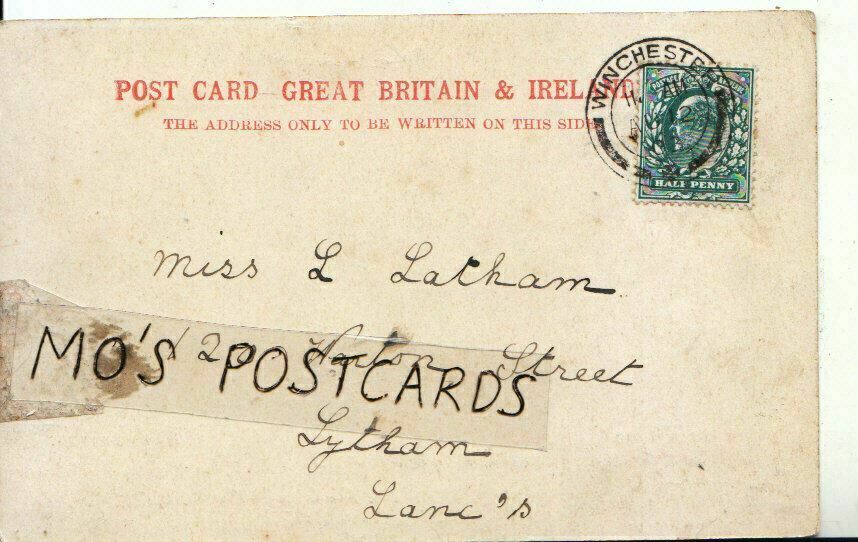 POST CARD GREAT BRITAIN & IRELAND
THE ADDRESS ONLY TO BE WRITTEN ON THIS SIDE
WINCHESTER
11 AM
HALF PENNY
Miss L Latham
20 Street
MO'S POSTCARDS
Lytham
Lanc's